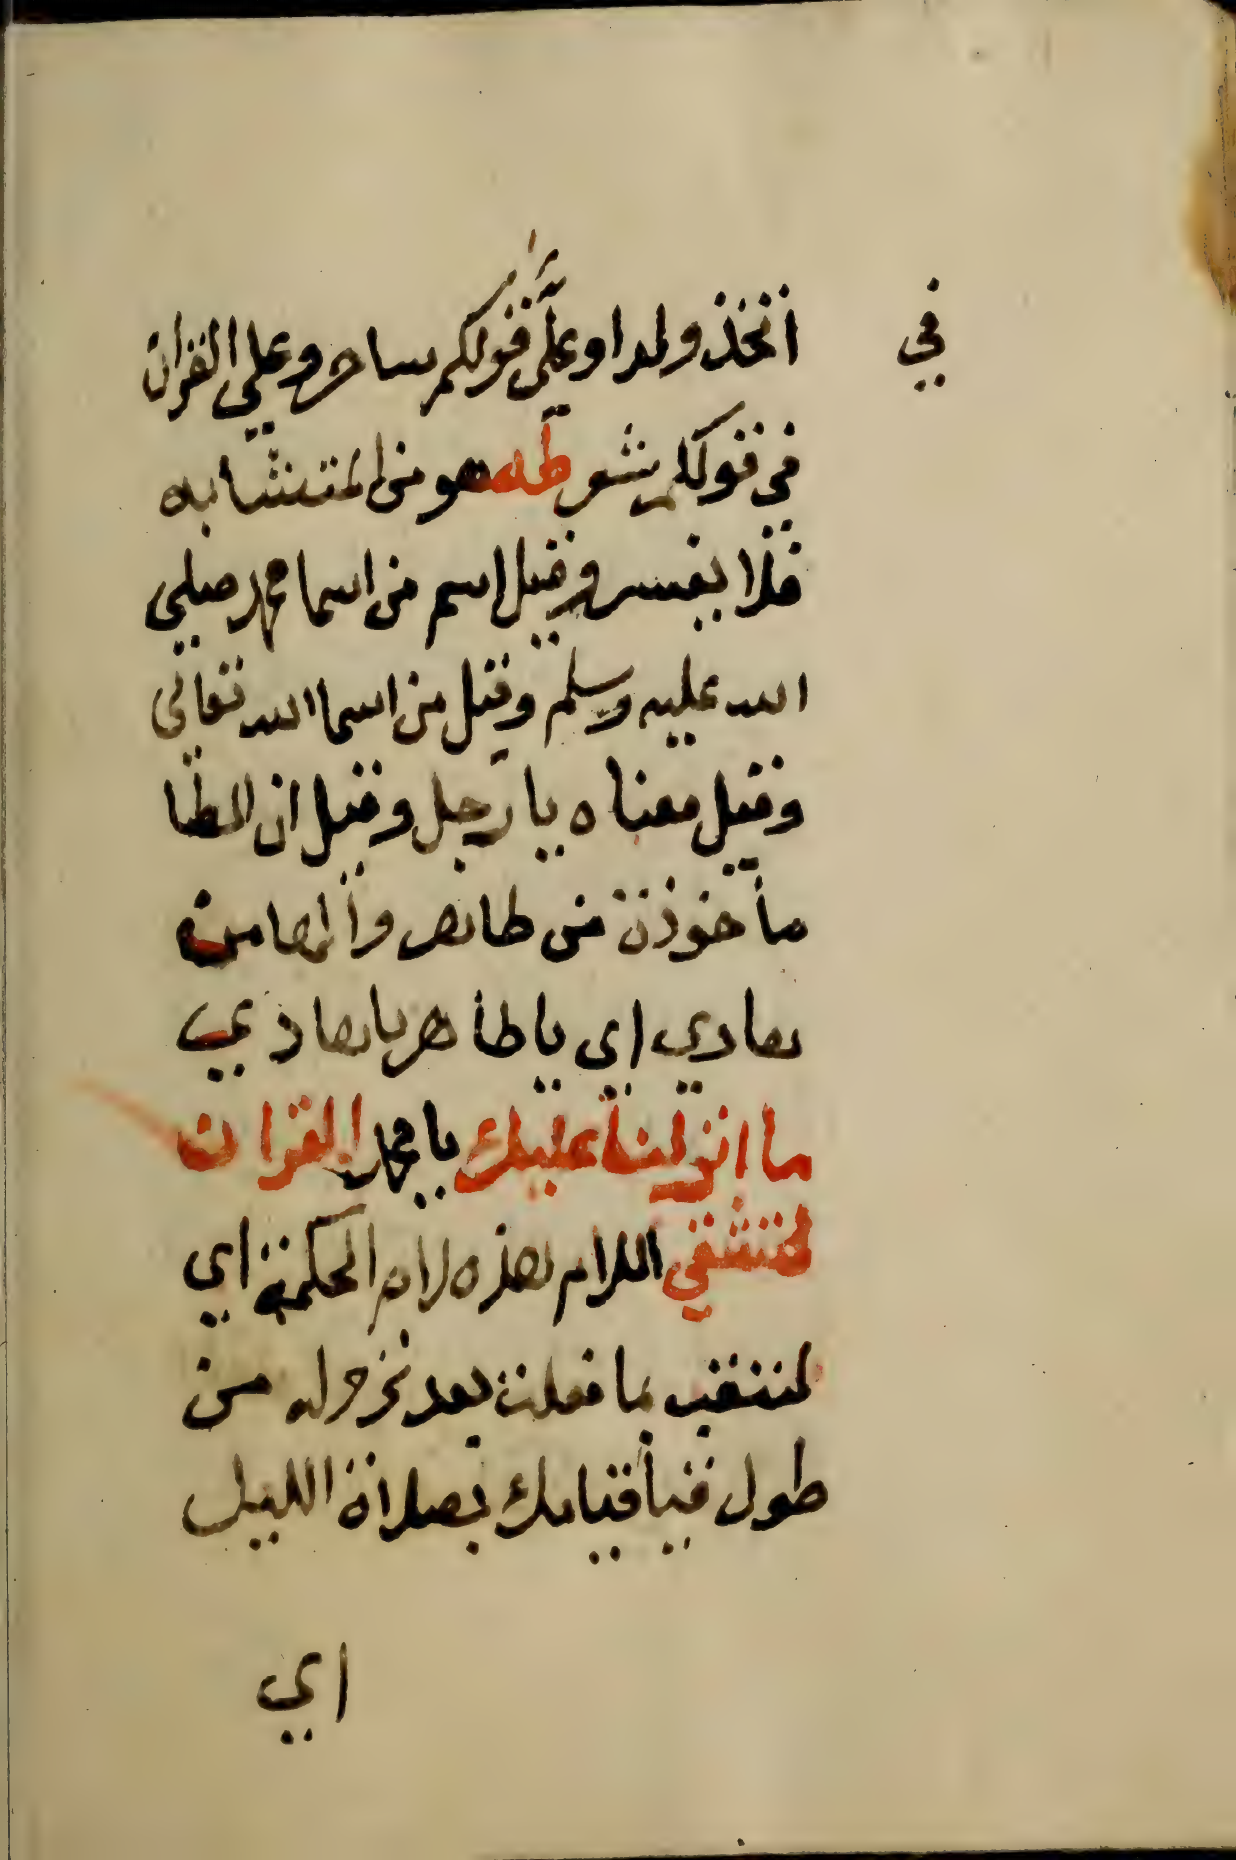 في
اتخذ ولدا وعليّ قولكم ساحر وعلي القران
في قولكم شعر طه هو من المتشابه
فلا يفسر وقيل اسم من اسما محمد صلي
الله عليه وسلم وقيل من اسما الله تعالي
وقيل معناه يا رجل وقيل ان الطا
مأخوذة من طاهر والها من
هادي اي يا طاهر يا هادي
ما انزلنا عليك يا محمد القران
لتشقي اللام هذه لام الحكمة اي
لتتعب بما فعلت بعد نزوله من
طول قيا قيامك بصلاة الليل
اي